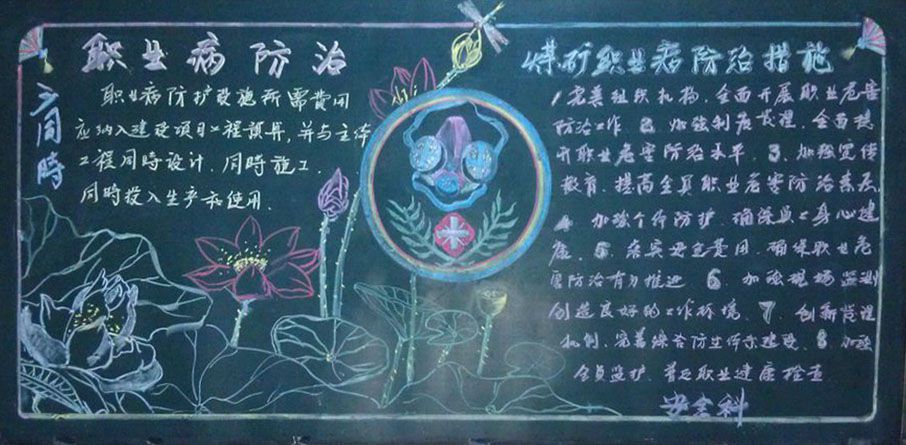 职业病防治
三同時
职业病防护设施所需费用
应纳入建设项目工程预算,并与主体
工程同時设计,同時施工.
同時投入生产和使用.
煤矿职业病防治措施
1完善组织机构、全面开展职业危害
防治工作.2、加强制度管理、全面提
升职业危害防治水平.3、加强宣传
教育、提高全员职业危害防治素质
4、加强个体防护、确保员工身心健
康、5、落实安全费用、确保职业危
害防治有力推进 6、加强现场监测
创造良好的工作环境、7、创新管理
机制、完善综合防治体系建设、8 加强
全员监护、普及职业健康检查
安全科